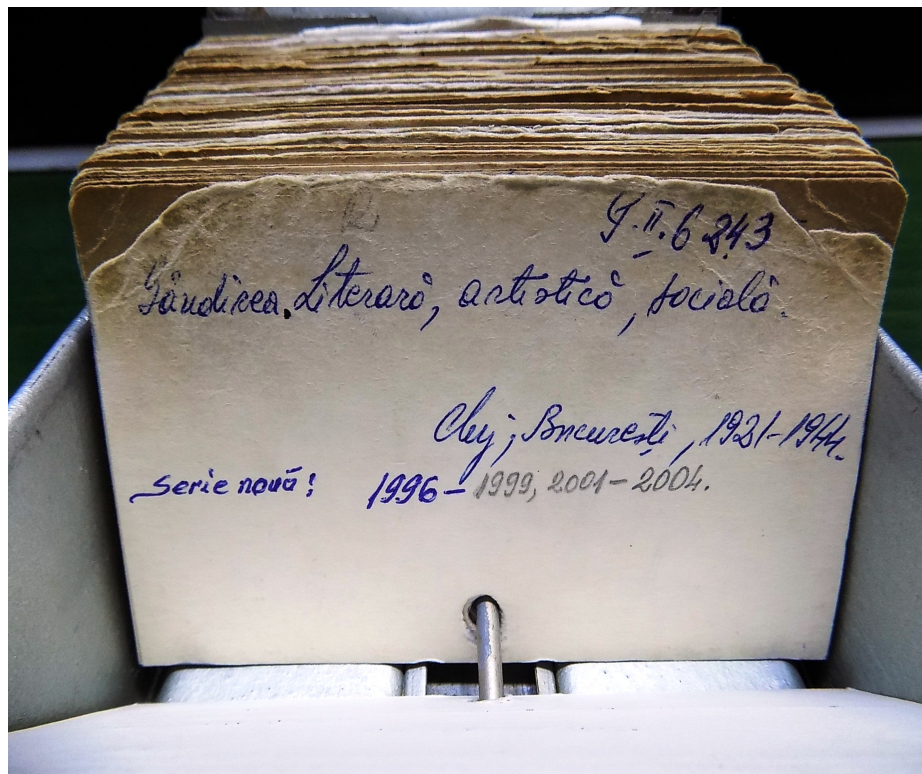 P.II.6243
Gândirea. Literară, artistică, socială.
Cluj; București, 1921-1944.
Serie nouă! 1996-1999, 2001-2004.